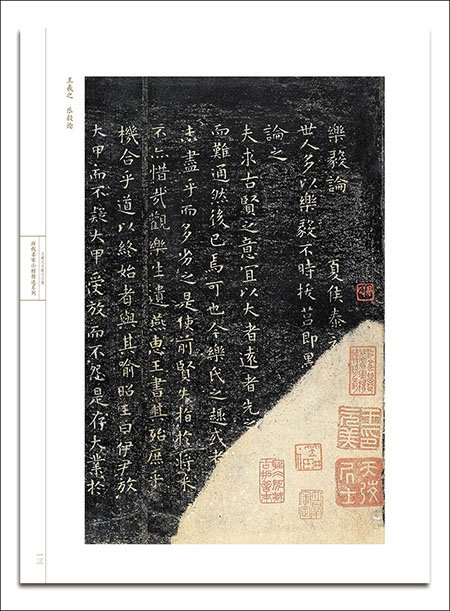 王羲之 乐毅论
樂毅論 夏侯泰
世人多以樂毅不時拔莒即墨
論之
夫求古賢之意宜以大者遠者先之
而難通然後已焉可也今樂氏之趣或者
志盡乎而多劣之是使前賢失指於將来
不亦惜哉觀樂生遺燕惠王書其殆庶乎
機合乎道以終始者與其喻昭王曰伊尹放
大甲而不疑大甲受放而不怨是存大業於
历代名家小楷精选系列
一三